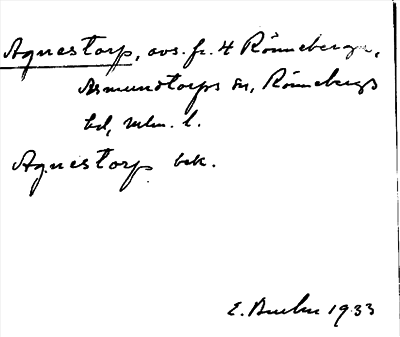 Agnestorp, avs. fr. 4 Rönneberga,
Asmundtorps sn, Rönnebergs
hd, Mlm. l.
Agnestorp bek.
E. 1933